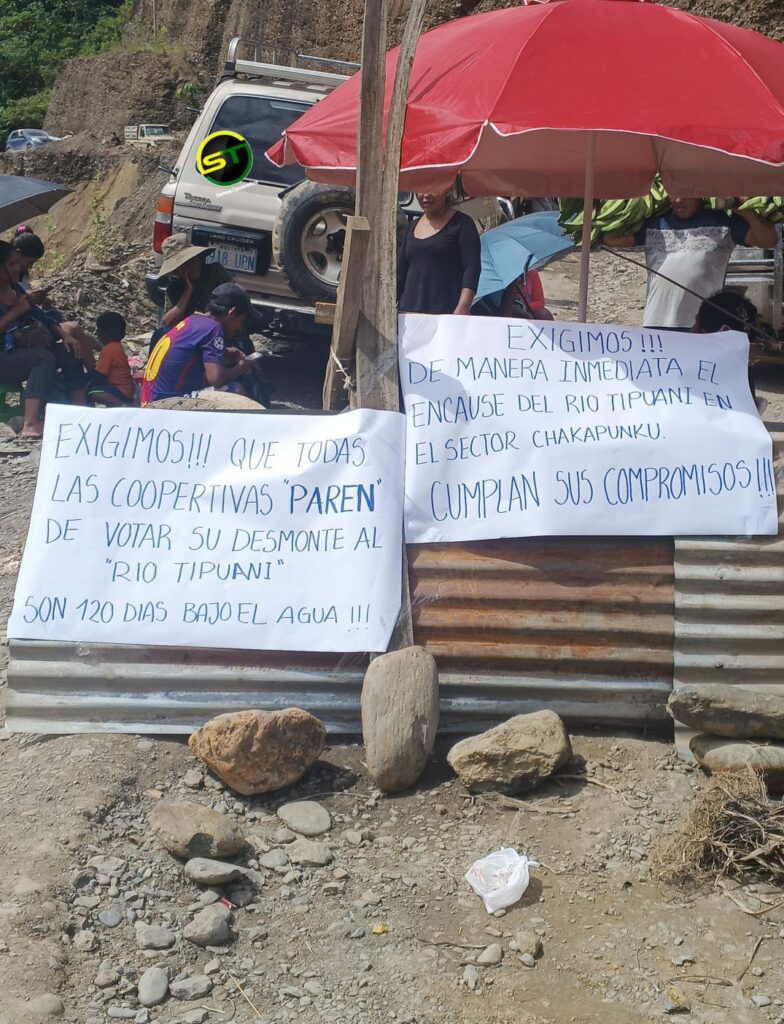 EXIGIMOS!!! QUE TODAS
LAS COOPERTIVAS "PAREN"
DE VOTAR SU DESMONTE AL
"RIO TIPUANI"
SON 120 DIAS BAJO EL AGUA !!!
EXIGIMOS!!!
DE MANERA INMEDIATA EL
ENCAUSE DEL RIO TIPUANI EN
EL SECTOR CHAKAPUNKU.
CUMPLAN SUS COMPROMISOS!!!
ST
LAND CRUISER
UPN